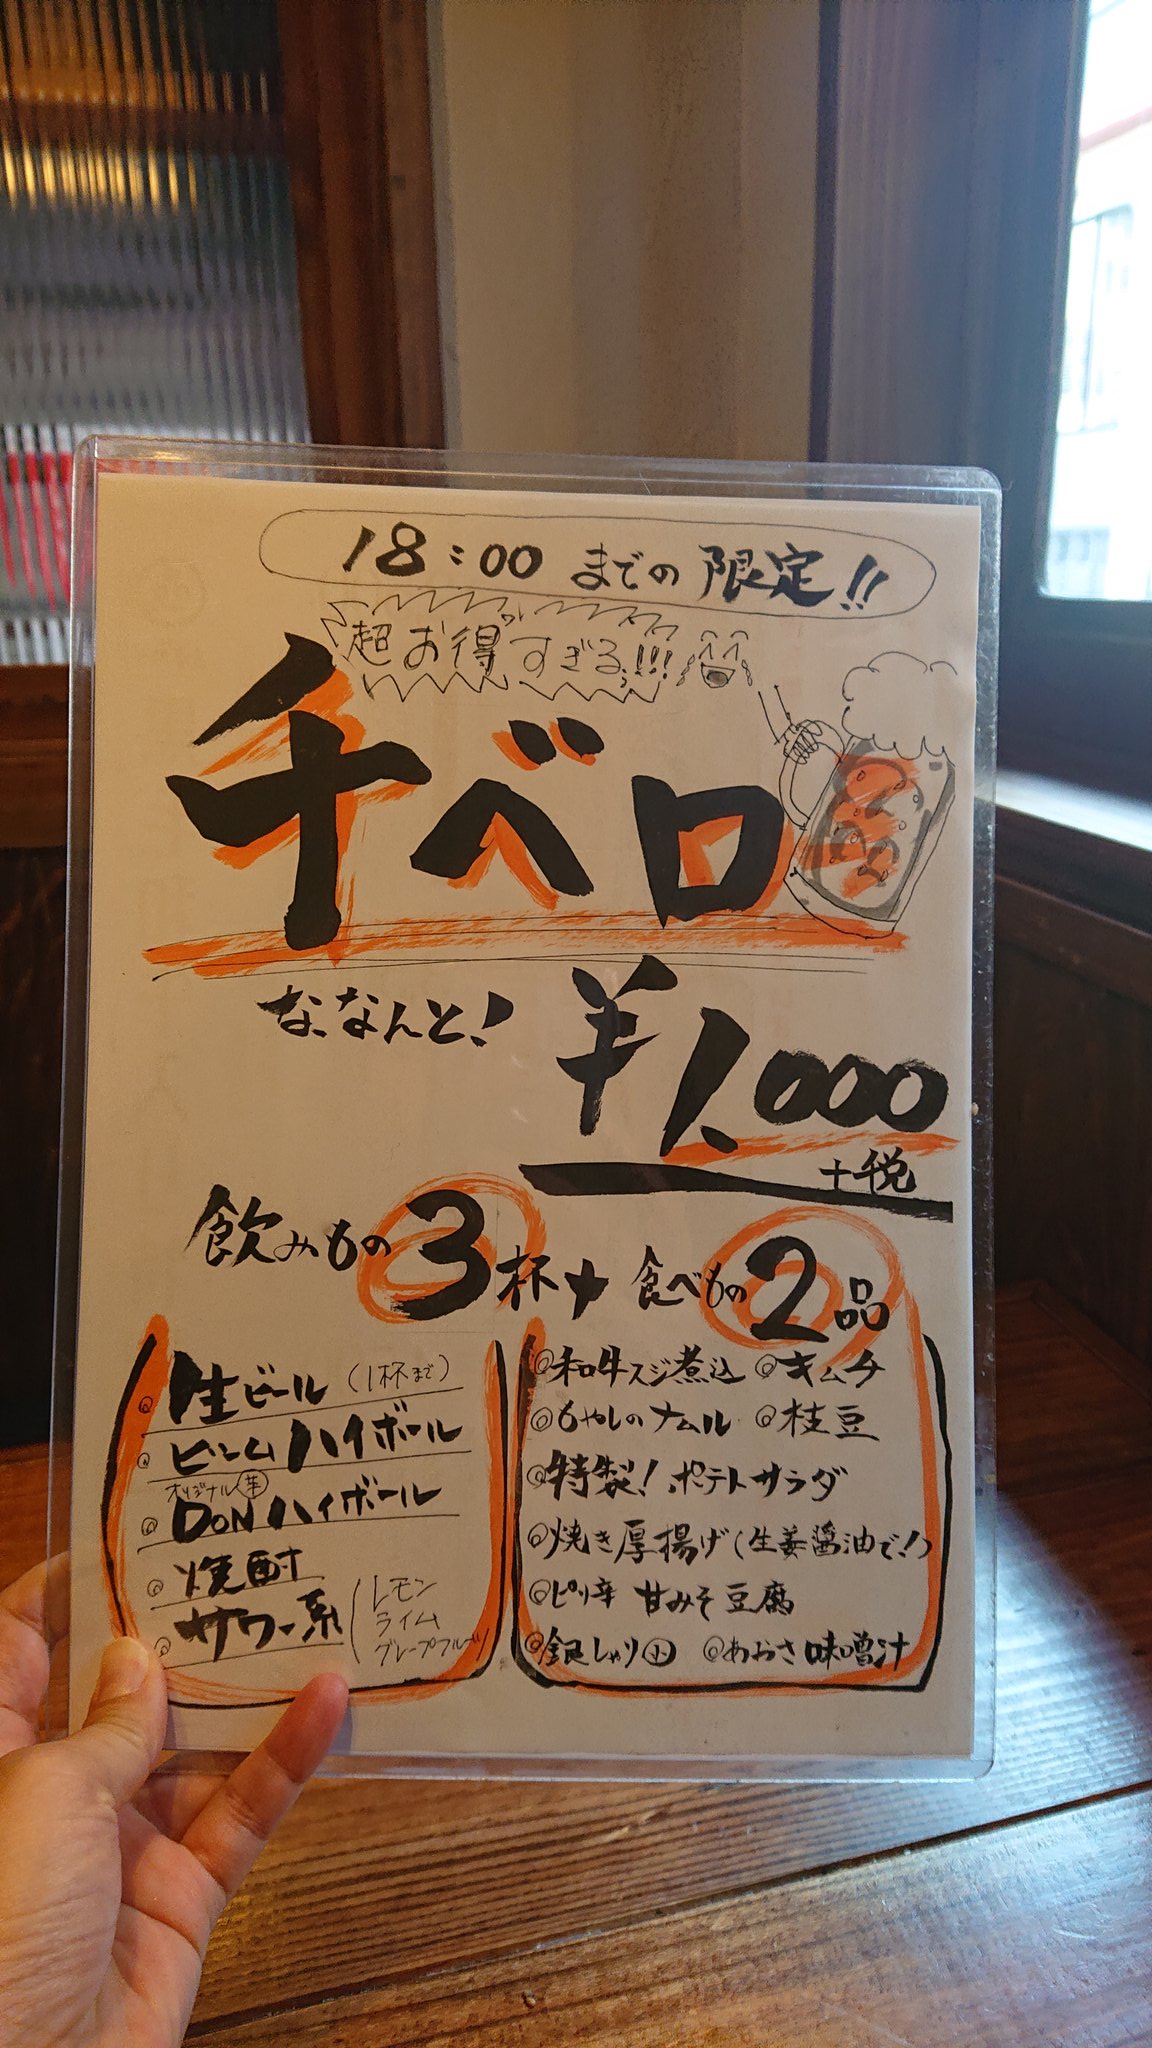 18:00 までの 限定!!
超お得すぎる!!!
千ベロ
な、なんと!
¥1,000
+税
飲みもの3杯+食べもの2品
◎生ビール (1杯まで)
◎ビームハイボール
オリジナル
◎DONハイボール
◎焼酎
◎サワー系 (レモン
ライム
グレープフルーツ)
◎和牛スジ煮込 ◎キムチ
◎もやしのナムル ◎枝豆
◎特製!ポテトサラダ
◎焼き厚揚げ(生姜醤油で!)
◎ピリ辛 甘みそ豆腐
◎銀しゃり小 ◎あおさ味噌汁